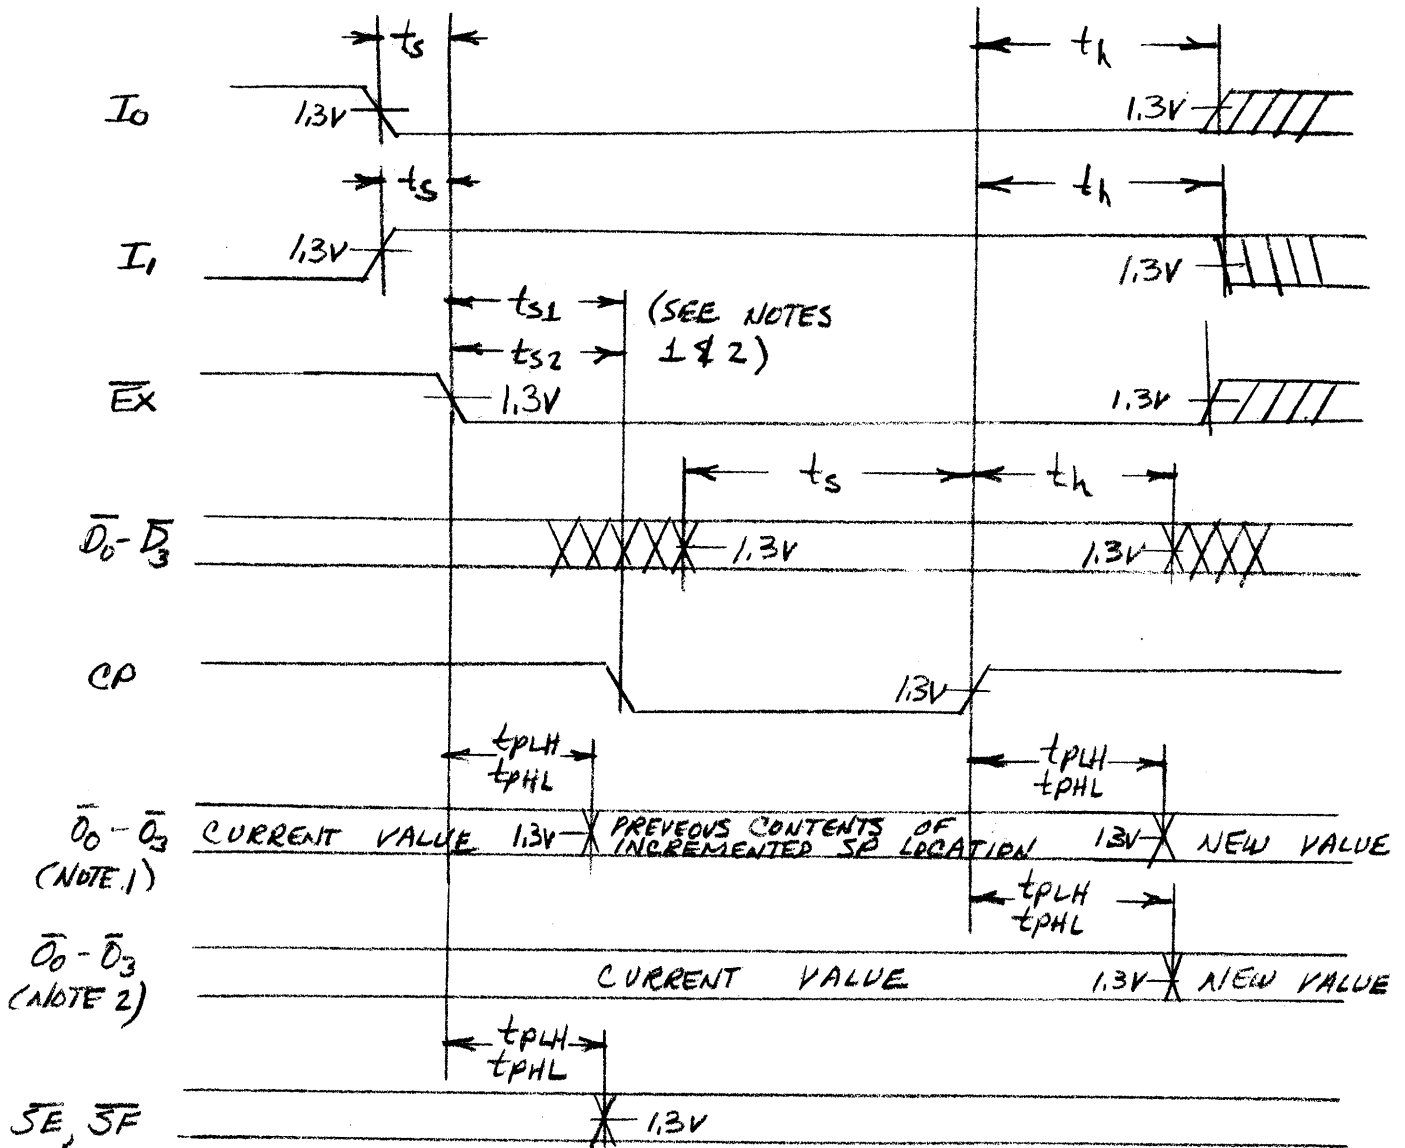 ts
th
I0
1.3V
1.3V
ts
th
I1
1.3V
1.3V
ts1
(SEE NOTES
ts2
1 & 2)
E̅X̅
1.3V
1.3V
ts
th
D̅0 - D̅3
1.3V
1.3V
CP
1.3V
tPLH
tPHL
tPLH
tPHL
O̅0 - O̅3
CURRENT VALUE
1.3V
PREVEOUS CONTENTS OF
INCREMENTED SP LOCATION
1.3V
NEW VALUE
(NOTE 1)
tPLH
tPHL
O̅0 - O̅3
CURRENT VALUE
1.3V
NEW VALUE
(NOTE 2)
tPLH
tPHL
S̅E̅, S̅F̅
1.3V